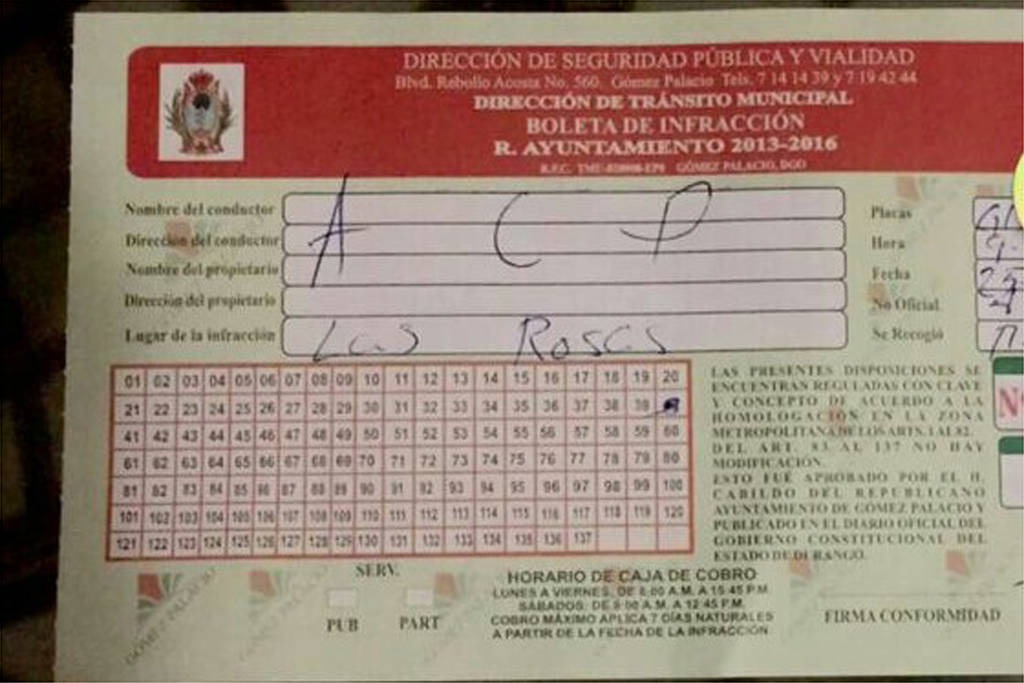 DIRECCIÓN DE SEGURIDAD PÚBLICA Y VIALIDAD
Blvd. Rebollo Acosta No. 560, Gómez Palacio Tels. 7 14 14 39 y 7 19 42 44
DIRECCIÓN DE TRÁNSITO MUNICIPAL
BOLETA DE INFRACCIÓN
R. AYUNTAMIENTO 2013-2016
R.F.C. GÓMEZ PALACIO, DGO
Nombre del conductor A C P Placas
Dirección del conductor Hora
Nombre del propietario Fecha
Dirección del propietario No Oficial
Lugar de la infracción Las Rosas Se Recogió
01 02 03 04 05 06 07 08 09 10 11 12 13 14 15 16 17 18 19 20
21 22 23 24 25 26 27 28 29 30 31 32 33 34 35 36 37 38 39
41 42 43 44 45 46 47 48 49 50 51 52 53 54 55 56 57 58 59 60
61 62 63 64 65 66 67 68 69 70 71 72 73 74 75 76 77 78 79 80
81 82 83 84 85 86 87 88 89 90 91 92 93 94 95 96 97 98 99 100
101 102 103 104 105 106 107 108 109 110 111 112 113 114 115 116 117 118 119 120
121 122 123 124 125 126 127 128 129 130 131 132 133 134 135 136 137
LAS PRESENTES DISPOSICIONES SE
ENCUENTRAN REGULADAS CON CLAVE
Y CONCEPTO DE ACUERDO A LA
HOMOLOGACIÓN EN LA ZONA
METROPOLITANA DE LOS ARTS. 1 AL 82.
DEL ART. 83 AL 137 NO HAY
MODIFICACIÓN.
ESTO FUÉ APROBADO POR EL H.
CABILDO DEL REPUBLICANO
AYUNTAMIENTO DE GÓMEZ PALACIO Y
PUBLICADO EN EL DIARIO OFICIAL DEL
GOBIERNO CONSTITUCIONAL DEL
ESTADO DE DURANGO.
SERV.
PUB PART
HORARIO DE CAJA DE COBRO
LUNES A VIERNES, DE 8:00 A.M. A 15:45 P.M.
SÁBADOS: DE 9:00 A.M. A 12:45 P.M.
COBRO MÁXIMO APLICA 7 DÍAS NATURALES
A PARTIR DE LA FECHA DE LA INFRACCIÓN.
FIRMA CONFORMIDAD
GÓMEZ PALACIO